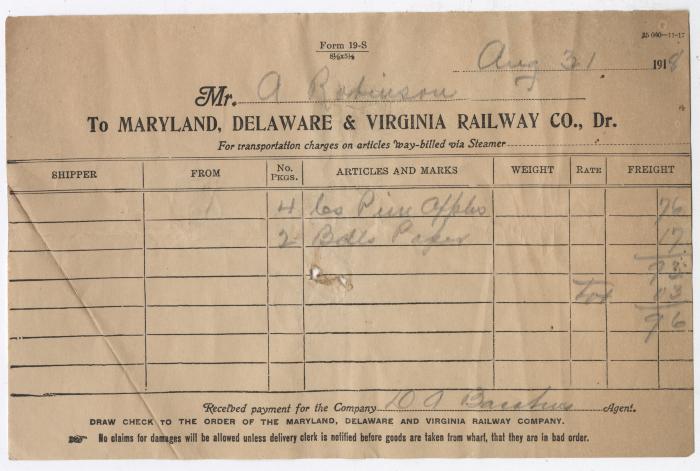 Form 19-S
8½x5½
25 000—11-17
Aug 31 1918
Mr. A Robinson
To MARYLAND, DELAWARE & VIRGINIA RAILWAY CO., Dr.
For transportation charges on articles way-billed via Steamer
SHIPPER FROM No. PKGS. ARTICLES AND MARKS WEIGHT RATE FREIGHT
4 Cs Pine Appls 76
2 Bdls Paper 17
93
Tax 03
96
Received payment for the Company D A Agent.
DRAW CHECK TO THE ORDER OF THE MARYLAND, DELAWARE AND VIRGINIA RAILWAY COMPANY.
No claims for damages will be allowed unless delivery clerk is notified before goods are taken from wharf, that they are in bad order.